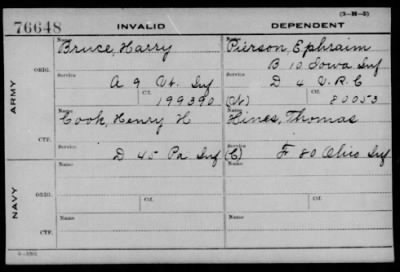 (3-18-5)
76648 INVALID DEPENDENT
ARMY
ORIG.
Name
Bruce, Harry
Service
A 9 Vt. Inf
Ctf.
199390
Name
Pierson, Ephraim
B 10 Iowa Inf
Service
D 4 V.R.C
Ctf.
(W) 80053
CTF.
Name
Cook, Henry H
Service
D 45 Pa Inf
Name
Hines, Thomas
Service
(C) F 80 Ohio Inf
NAVY
ORIG.
Name
Service
Ctf.
Name
Service
Ctf.
CTF.
Name
Service
Name
Service